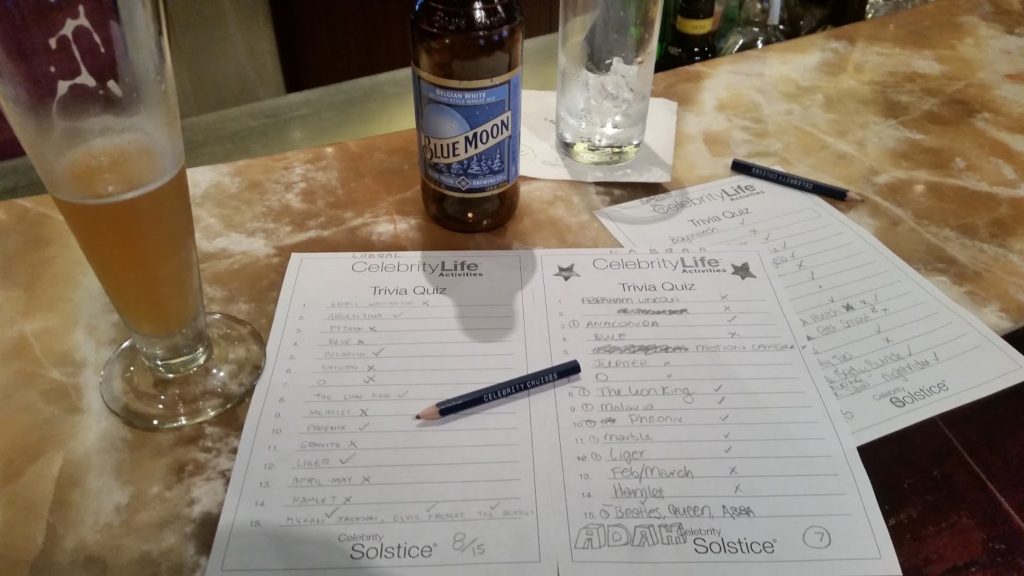 BELGIAN WHITE
BLUE MOON
BREWING CO.
CELEBRITY CRUISES
LABRAL
CelebrityLife
Activities
Trivia Quiz
1. GEORGE WASHINGTON x
2. ARGENTINA ✓
3. PYTHON x
4. BLUE x
5. POLAROID ✓
6. SATURN x
7. O x
8. THE LION KING ✓
9. x
10. PHOENIX ✓
11. GRANITE x
12. LIGER ✓
13. APRIL-MAY x
14. HAMLET x
15. MICHAEL JACKSON, ELVIS PRESLEY, THE BEATLES
Celebrity
Solstice
8/15
CELEBRITY CRUISES
LABRAA
CelebrityLife
Activities
Trivia Quiz
1. ABRAHAM LINCOLN x
2. x
3. 1 ANACONDA ✓
4. BLUE x
5. MOTION CAMERA
6. JUPITER x
7. O x
8. 1 The Lion King ✓
9. 1 ✓
10. 1 Pheonix ✓
11. 1 Marble ✓
12. 1 Liger ✓
13. Feb/March x
14. Hamlet x
15. 1 Beatles, Queen, ABBA
ADAM
Celebrity
Solstice
7
CelebrityLife
Activities
Trivia Quiz
Celebrity
Solstice